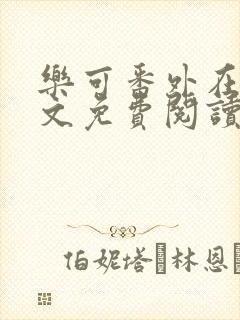 樂可番外在
文免費閱讀
伯妮塔 林恩